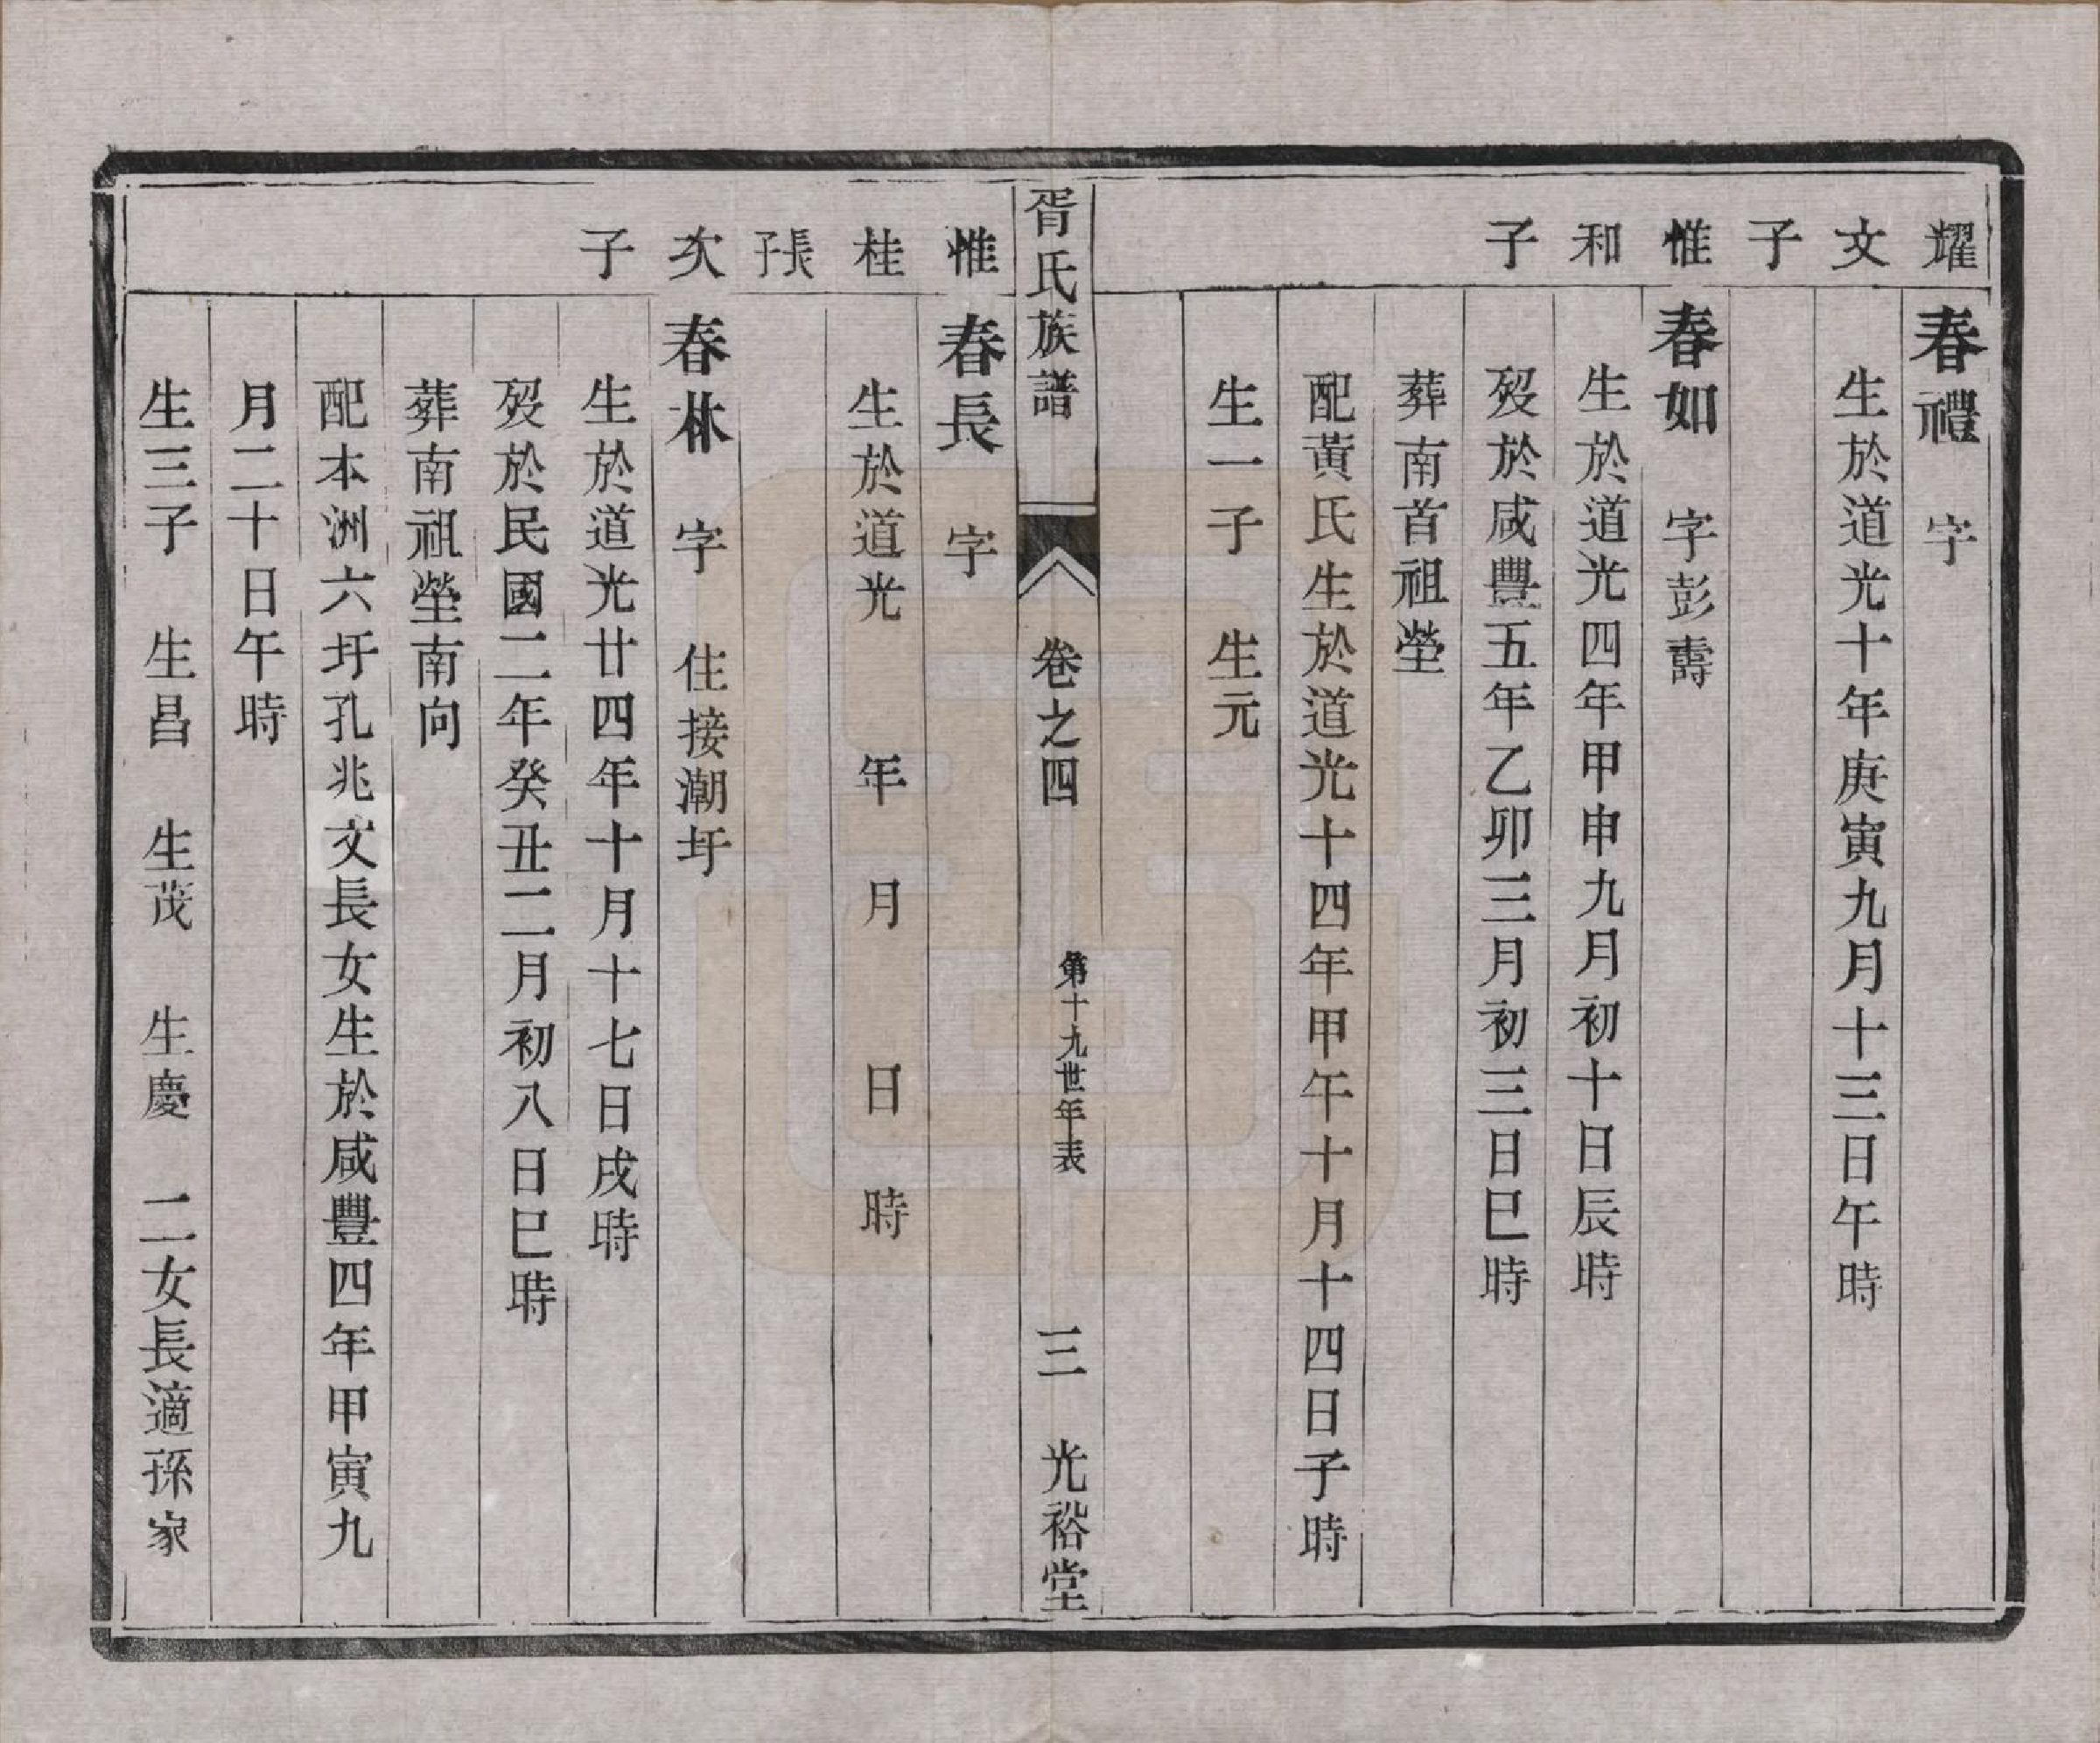 耀文子
春禮　字
生於道光十年庚寅九月十三日午時
惟和子
春如　字彭壽
生於道光四年甲申九月初十日辰時
歿於咸豐五年乙卯三月初三日巳時
葬南首祖塋
配黃氏生於道光十四年甲午十月十四日子時
生一子　生元
胥氏族譜　卷之四　第十九世年表　三　光裕堂
惟桂長子
春長　字
生於道光　年　月　日　時
次子
春林　字　住接潮圩
生於道光廿四年十月十七日戌時
歿於民國二年癸丑二月初八日巳時
葬南祖塋南向
配本洲六圩孔兆文長女生於咸豐四年甲寅九
月二十日午時
生三子　生昌　生茂　生慶　二女長適孫家